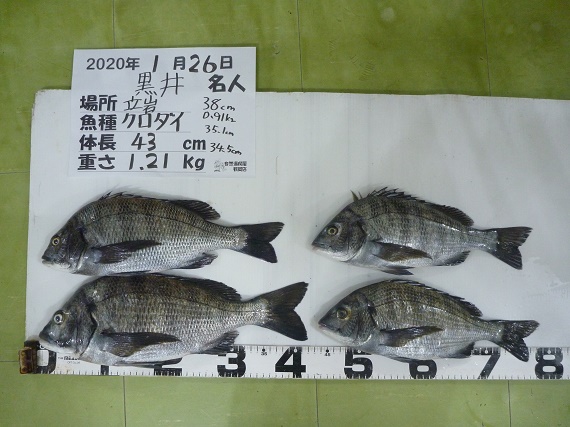 2020年 1月26日
黒井 名人
場所 立岩
38cm
魚種 クロダイ
0.91kg
35.1cm
体長 43 cm
34.5cm
重さ 1.21 Kg
0 1 2 3 4 5 6 7 8